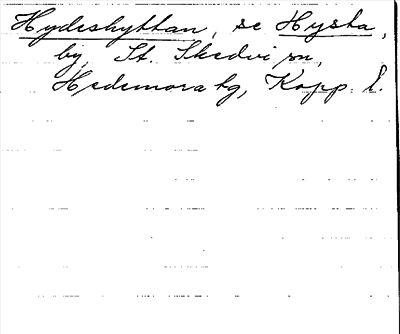 Hydeshyttan, se Hysta,
by, St. Skedvi sn,
Hedemora tg, Kopp. l.